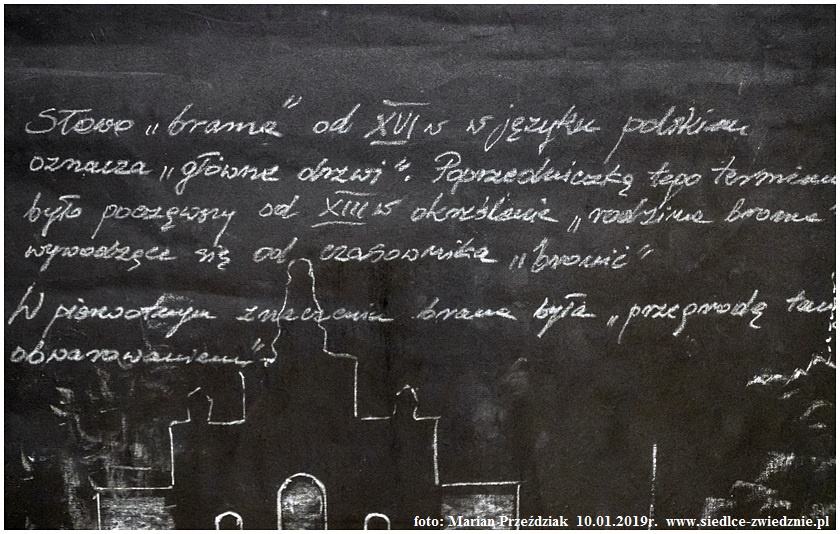 Słowo „brama” od XVI w w języku polskim
oznacza „główne drzwi”. Poprzedniczką tego terminu
było począwszy od XIII w określenie „rodzima brona
wywodzące się od czasownika „bronić”
W pierwotnym znaczeniu brama była „przegrodą
obwarowaniem”.
foto: Marian Przeździak 10.01.2019r. www.siedlce-zwiedznie.pl